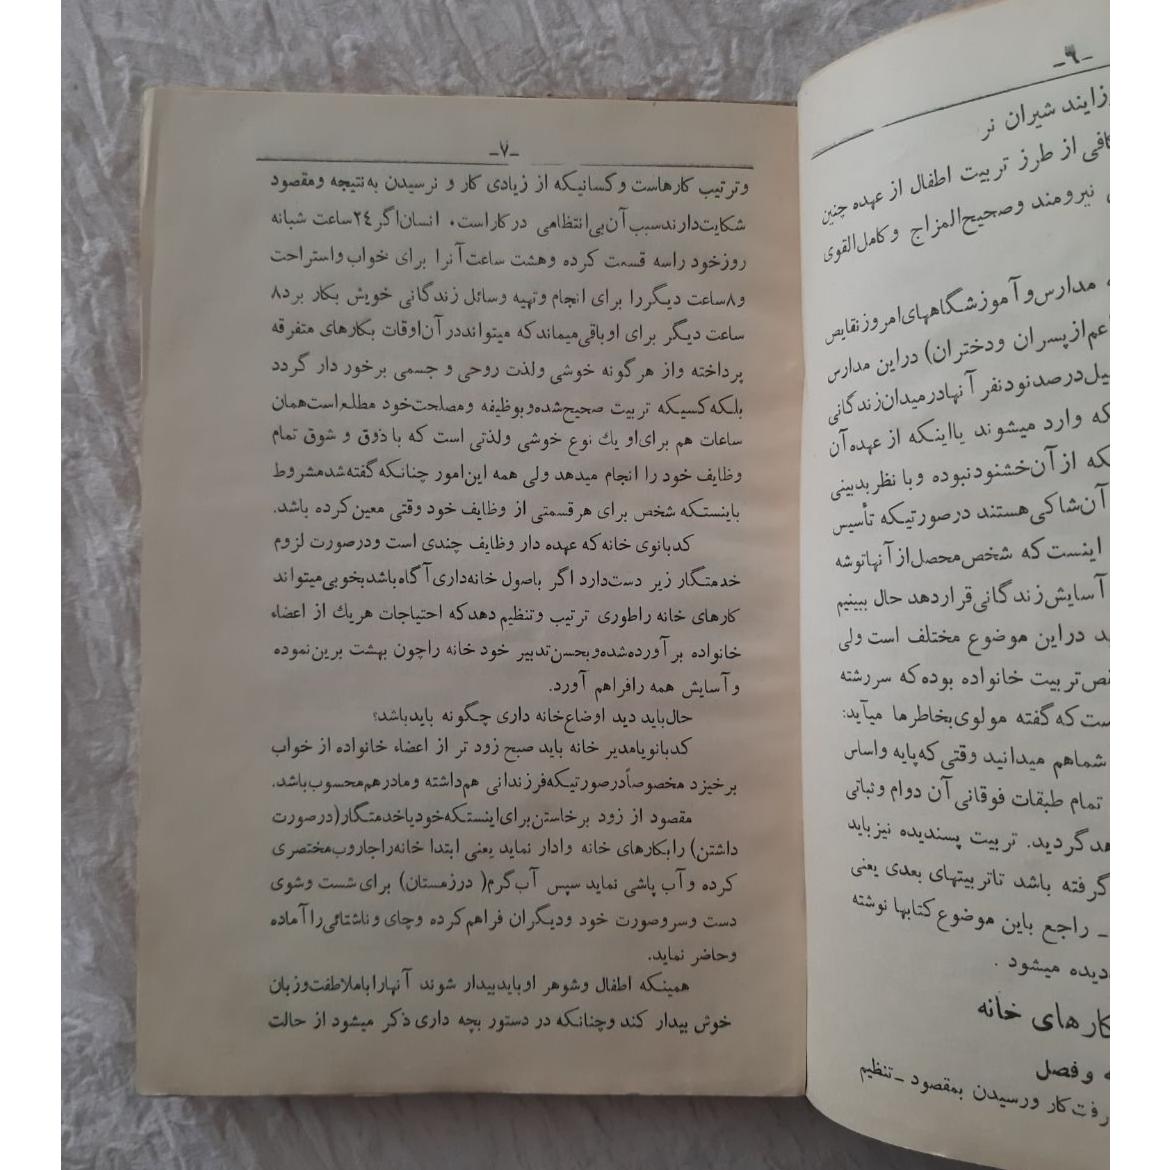 -٦-
زایند شیران نر
کافی از طرز تربیت اطفال از عهده چنین
نیرومند وصحیح‌المزاج وکامل‌القوی
مدارس‌وآموزشگاههای‌امروزنقایص
(اعم‌ازپسران ودختران) دراین مدارس
درصدنودنفر آنهادرمیدان‌زندگانی
که وارد میشوند یااینکه از عهده‌آن
که از‌آن‌خشنودنبوده وبا نظربدبینی
آن‌شاکی‌هستند درصورتیکه تأسیس
اینست‌که شخص‌محصل‌از آنهاتوشه
آسایش‌زندگانی‌قراردهد حال ببینیم
دراین موضوع مختلف است ولی
تربیت خانواده بوده‌که سررشته
است‌که‌گفته مولوی‌بخاطرها میآید:
شماهم میدانید وقتی‌که‌پایه واساس
تمام طبقات فوقانی‌آن دوام وثباتی
گردید. تربیت پسندیده نیزباید
گرفته باشد تاتربیتهای بعدی یعنی
ـ راجع باین موضوع‌کتابها نوشته
دیده میشود .
کارهای خانه
و فصل
رفت‌کار ورسیدن بمقصود ـ تنظیم
-٧-
وترتیب کارهاست وکسانیکه از زیادی کار و نرسیدن به‌نتیجه ومقصود
شکایت‌دارندسبب آن‌بی‌انتظامی درکاراست. انسان‌اگر ٢٤ساعت شبانه
روزخود راسه قسمت کرده وهشت ساعت‌آنرا برای خواب واستراحت
و٨ساعت دیگررا برای انجام وتهیه وسائل زندگانی خویش بکار برد٨
ساعت دیگر برای اوباقی‌میماندکه میتوانددر‌آن‌اوقات بکارهای متفرقه
پرداخته واز هرگونه خوشی ولذت روحی و جسمی برخور دار گردد
بلکه‌کسیکه تربیت صحیح‌شده‌وبوظیفه ومصلحت‌خود مطلع‌است‌همان
ساعات هم برای‌او یك نوع خوشی ولذتی است که باذوق و شوق تمام
وظایف خود را انجام میدهد ولی همه این‌امور چنانکه‌گفته‌شدمشروط
باینستکه شخص برای هرقسمتی از وظایف خود وقتی معین‌کرده باشد.
کدبانوی خانه‌که عهده دار وظایف چندی است ودرصورت لزوم
خدمتگار زیر دست‌دارد اگر باصول خانه‌داری آگاه‌باشدبخوبی‌میتواند
کارهای خانه راطوری ترتیب وتنظیم دهدکه احتیاجات هریك از اعضاء
خانواده برآورده‌شده‌وبحسن‌تدبیر خود خانه راچون بهشت برین‌نموده
وآسایش همه رافراهم آورد.
حال‌باید دید اوضاع‌خانه داری چگونه بایدباشد؟
کدبانویامدیر خانه باید صبح زود تر از اعضاء خانواده از خواب
برخیزد مخصوصاًدرصورتیکه‌فرزندانی هم‌داشته ومادرهم‌محسوب‌باشد.
مقصود از زود برخاستن‌برای‌اینستکه‌خودیاخدمتگار(درصورت
داشتن) رابکارهای خانه وادار نماید یعنی ابتدا خانه‌راجاروب‌مختصری
کرده وآب پاشی نماید سپس آب‌گرم( درزمستان) برای شست وشوی
دست وسروصورت خود ودیگران فراهم‌کرده وچای وناشتائی‌راآماده
وحاضر نماید.
همینکه اطفال وشوهر اوبایدبیدار شوند آنهاراباملاطفت‌وزبان
خوش بیدار کند وچنانکه در دستور بچه داری ذکر میشود از حالت